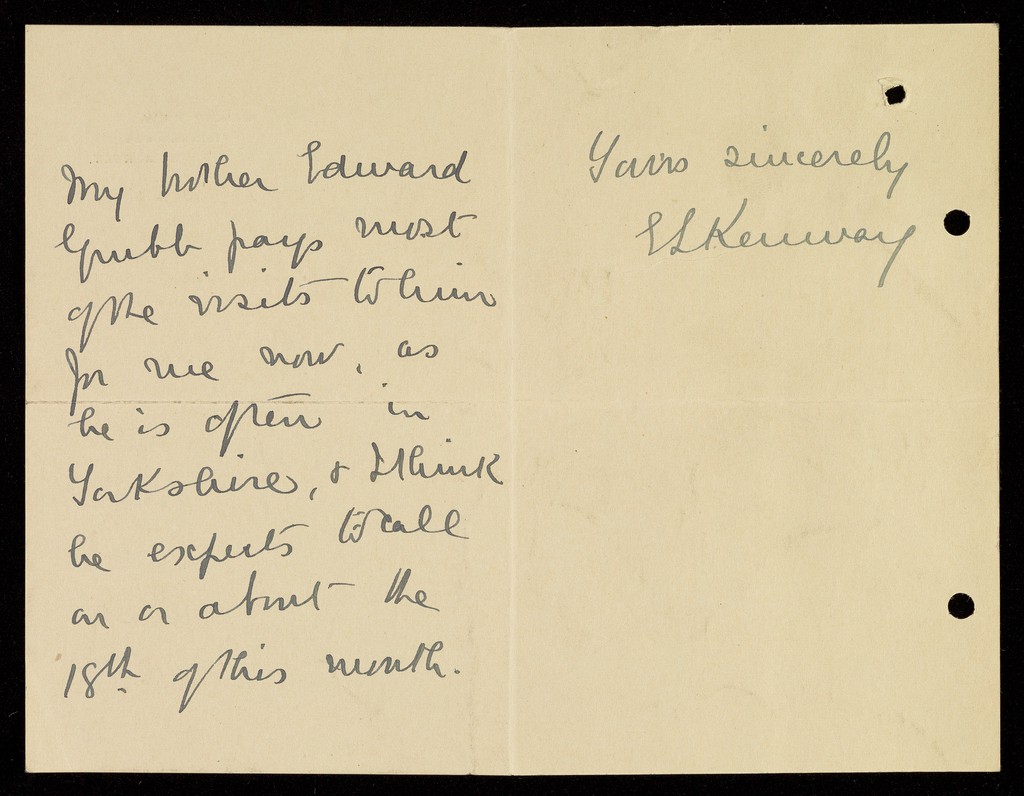 My brother Edward
Grubb pays most
of the visits to him
for me now, as
he is often in
Yorkshire, & I think
he expects to call
on or about the
18th. of this month.
Yours sincerely
E L Kenway